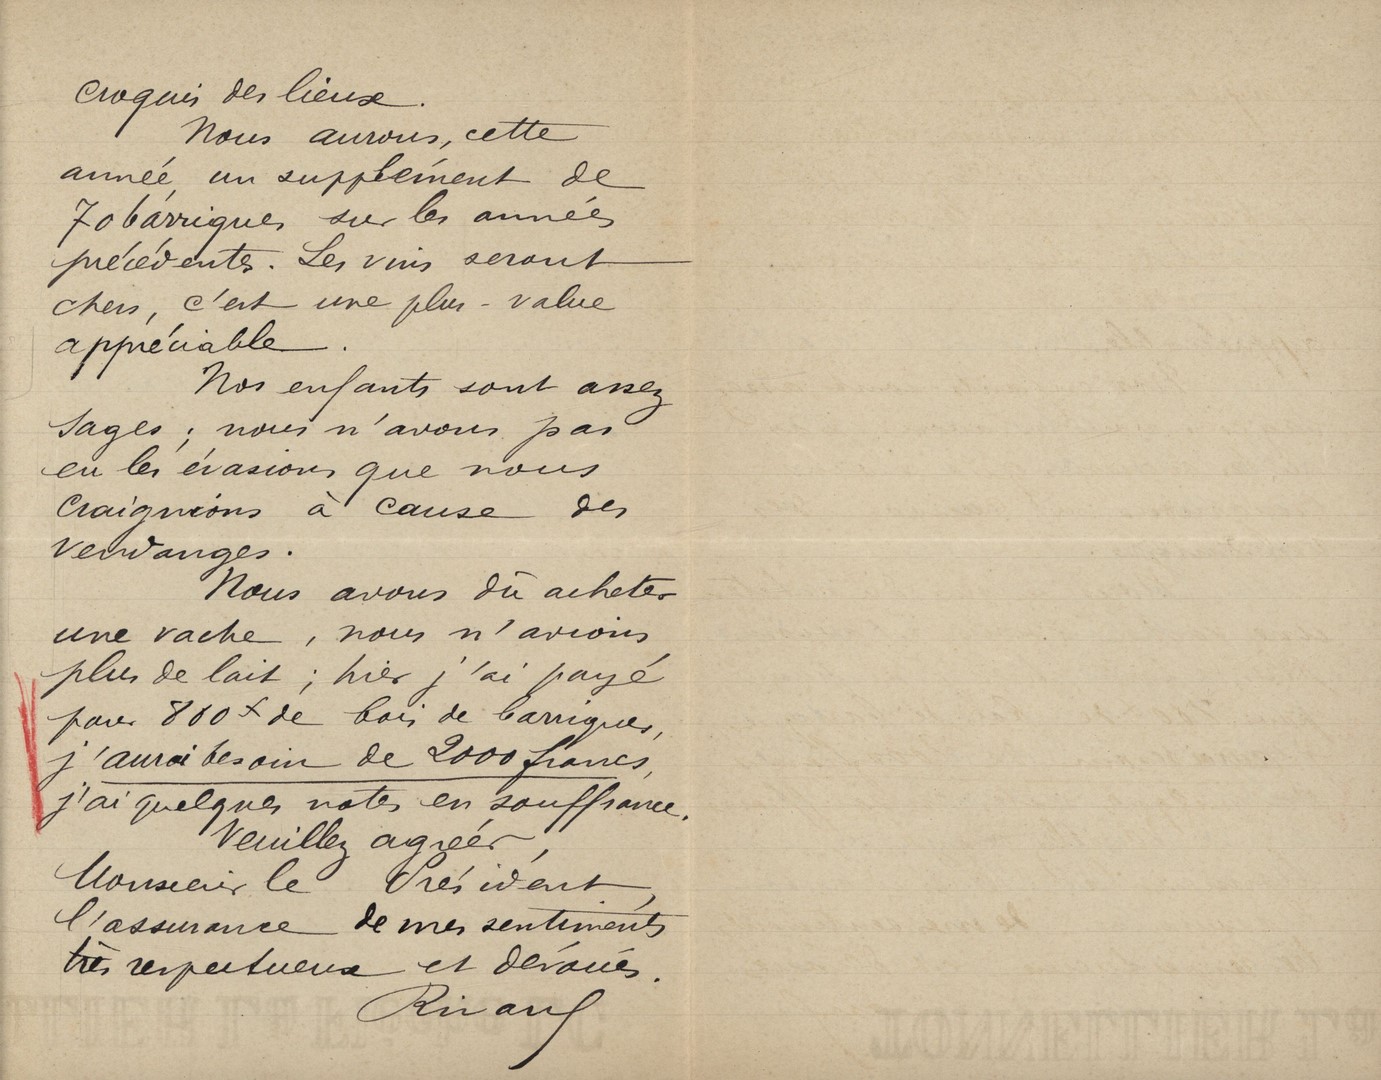 croquis des lieux.
Nous aurons, cette
année, un supplément de
70 barriques sur les années
précédentes. Les vins seront
chers, c'est une plus-value
appréciable.
Nos enfants sont assez
sages ; nous n'avons pas
eu les évasions que nous
craignions à cause des
vendanges.
Nous avons dû acheter
une vache, nous n'avions
plus de lait ; hier j'ai payé
pour 800f de bois de barriques,
j'aurai besoin de 2000 francs,
j'ai quelques notes en souffrance.
Veuillez agréer,
Monsieur le Président,
l'assurance de mes sentiments
très respectueux et dévoués.